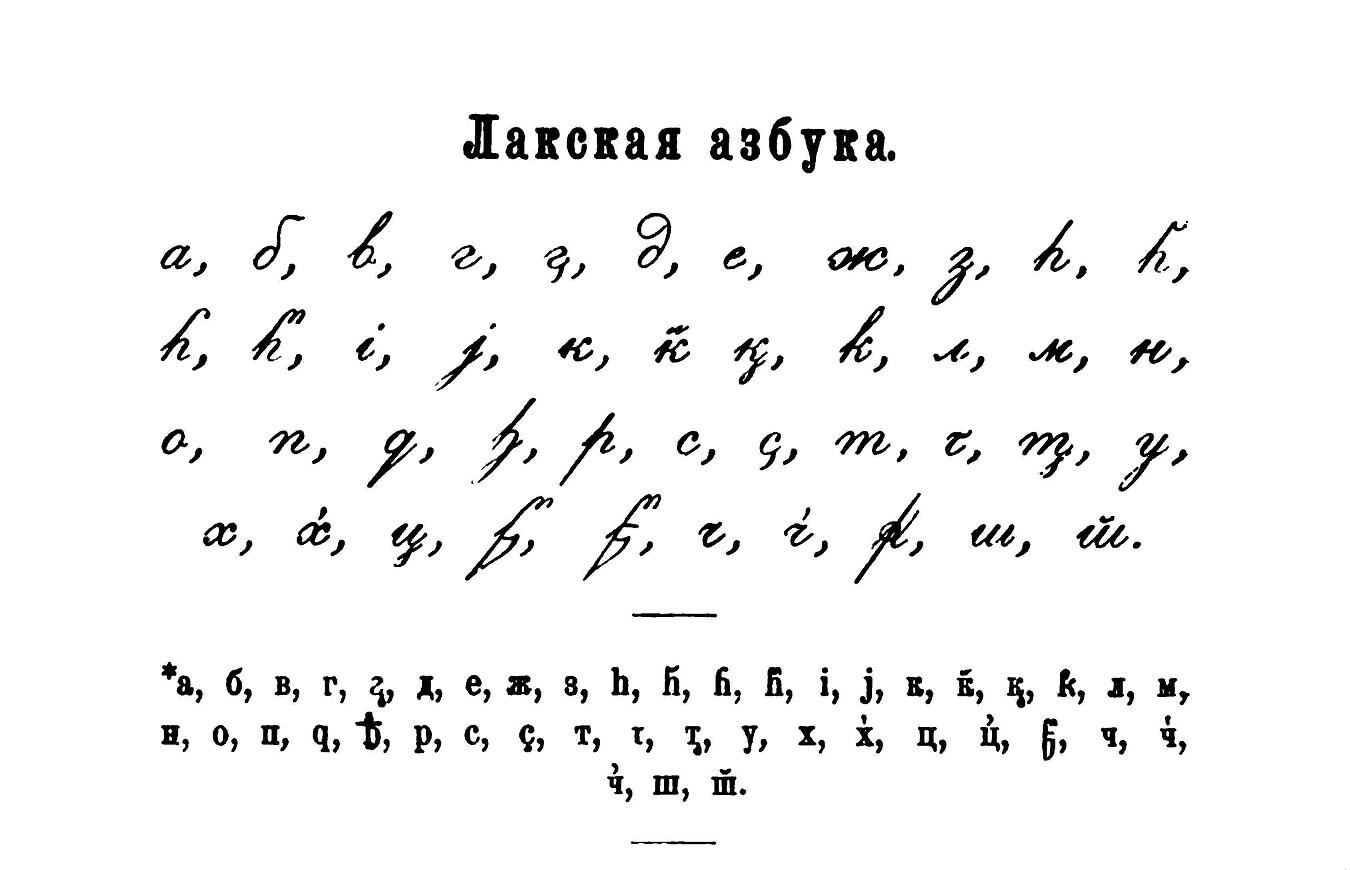 Лакская азбука.
а, б, в, г, г̧, д, е, ж, з, һ, һ̆,
ɦ, ɦ̆, і, ј, к, к̆, қ, ƙ, л, м, н,
о, п, q, ђ, р, с, ҫ, т, ꚍ, т̨, у,
х, х̓, ц, ч, ч̓, ш, ш̆.
*а, б, в, г, г̧, д, е, ж, з, һ, һ̆, ɦ, ɦ̆, і, ј, к, к̆, қ, ƙ, л, м,
н, о, п, q, ђ, р, с, ҫ, т, τ, т̨, у, х, х̓, ц, ц̓, ч, ч̓,
ч̓, ш, ш̆.